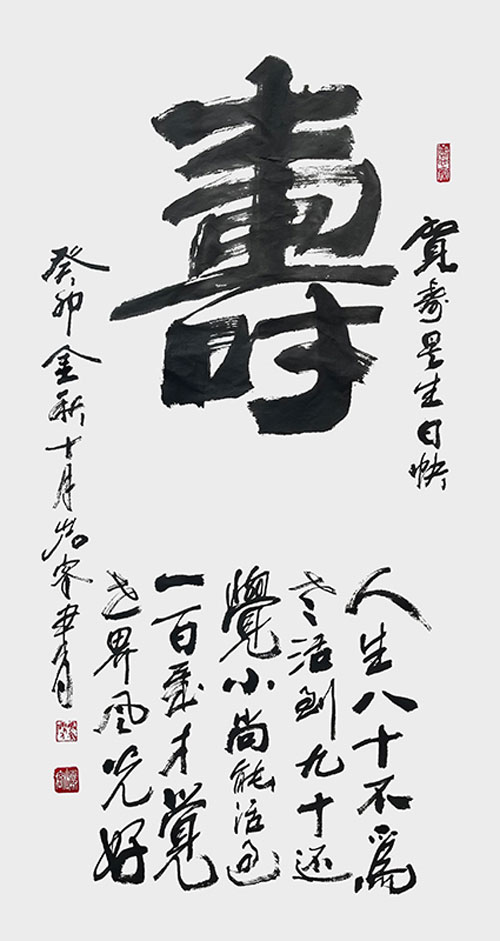 賀壽星生日快
壽
人生八十不爲
老活到九十還
覺小尚能活過
一百歲才覺
世界風光好
癸卯金秋十月